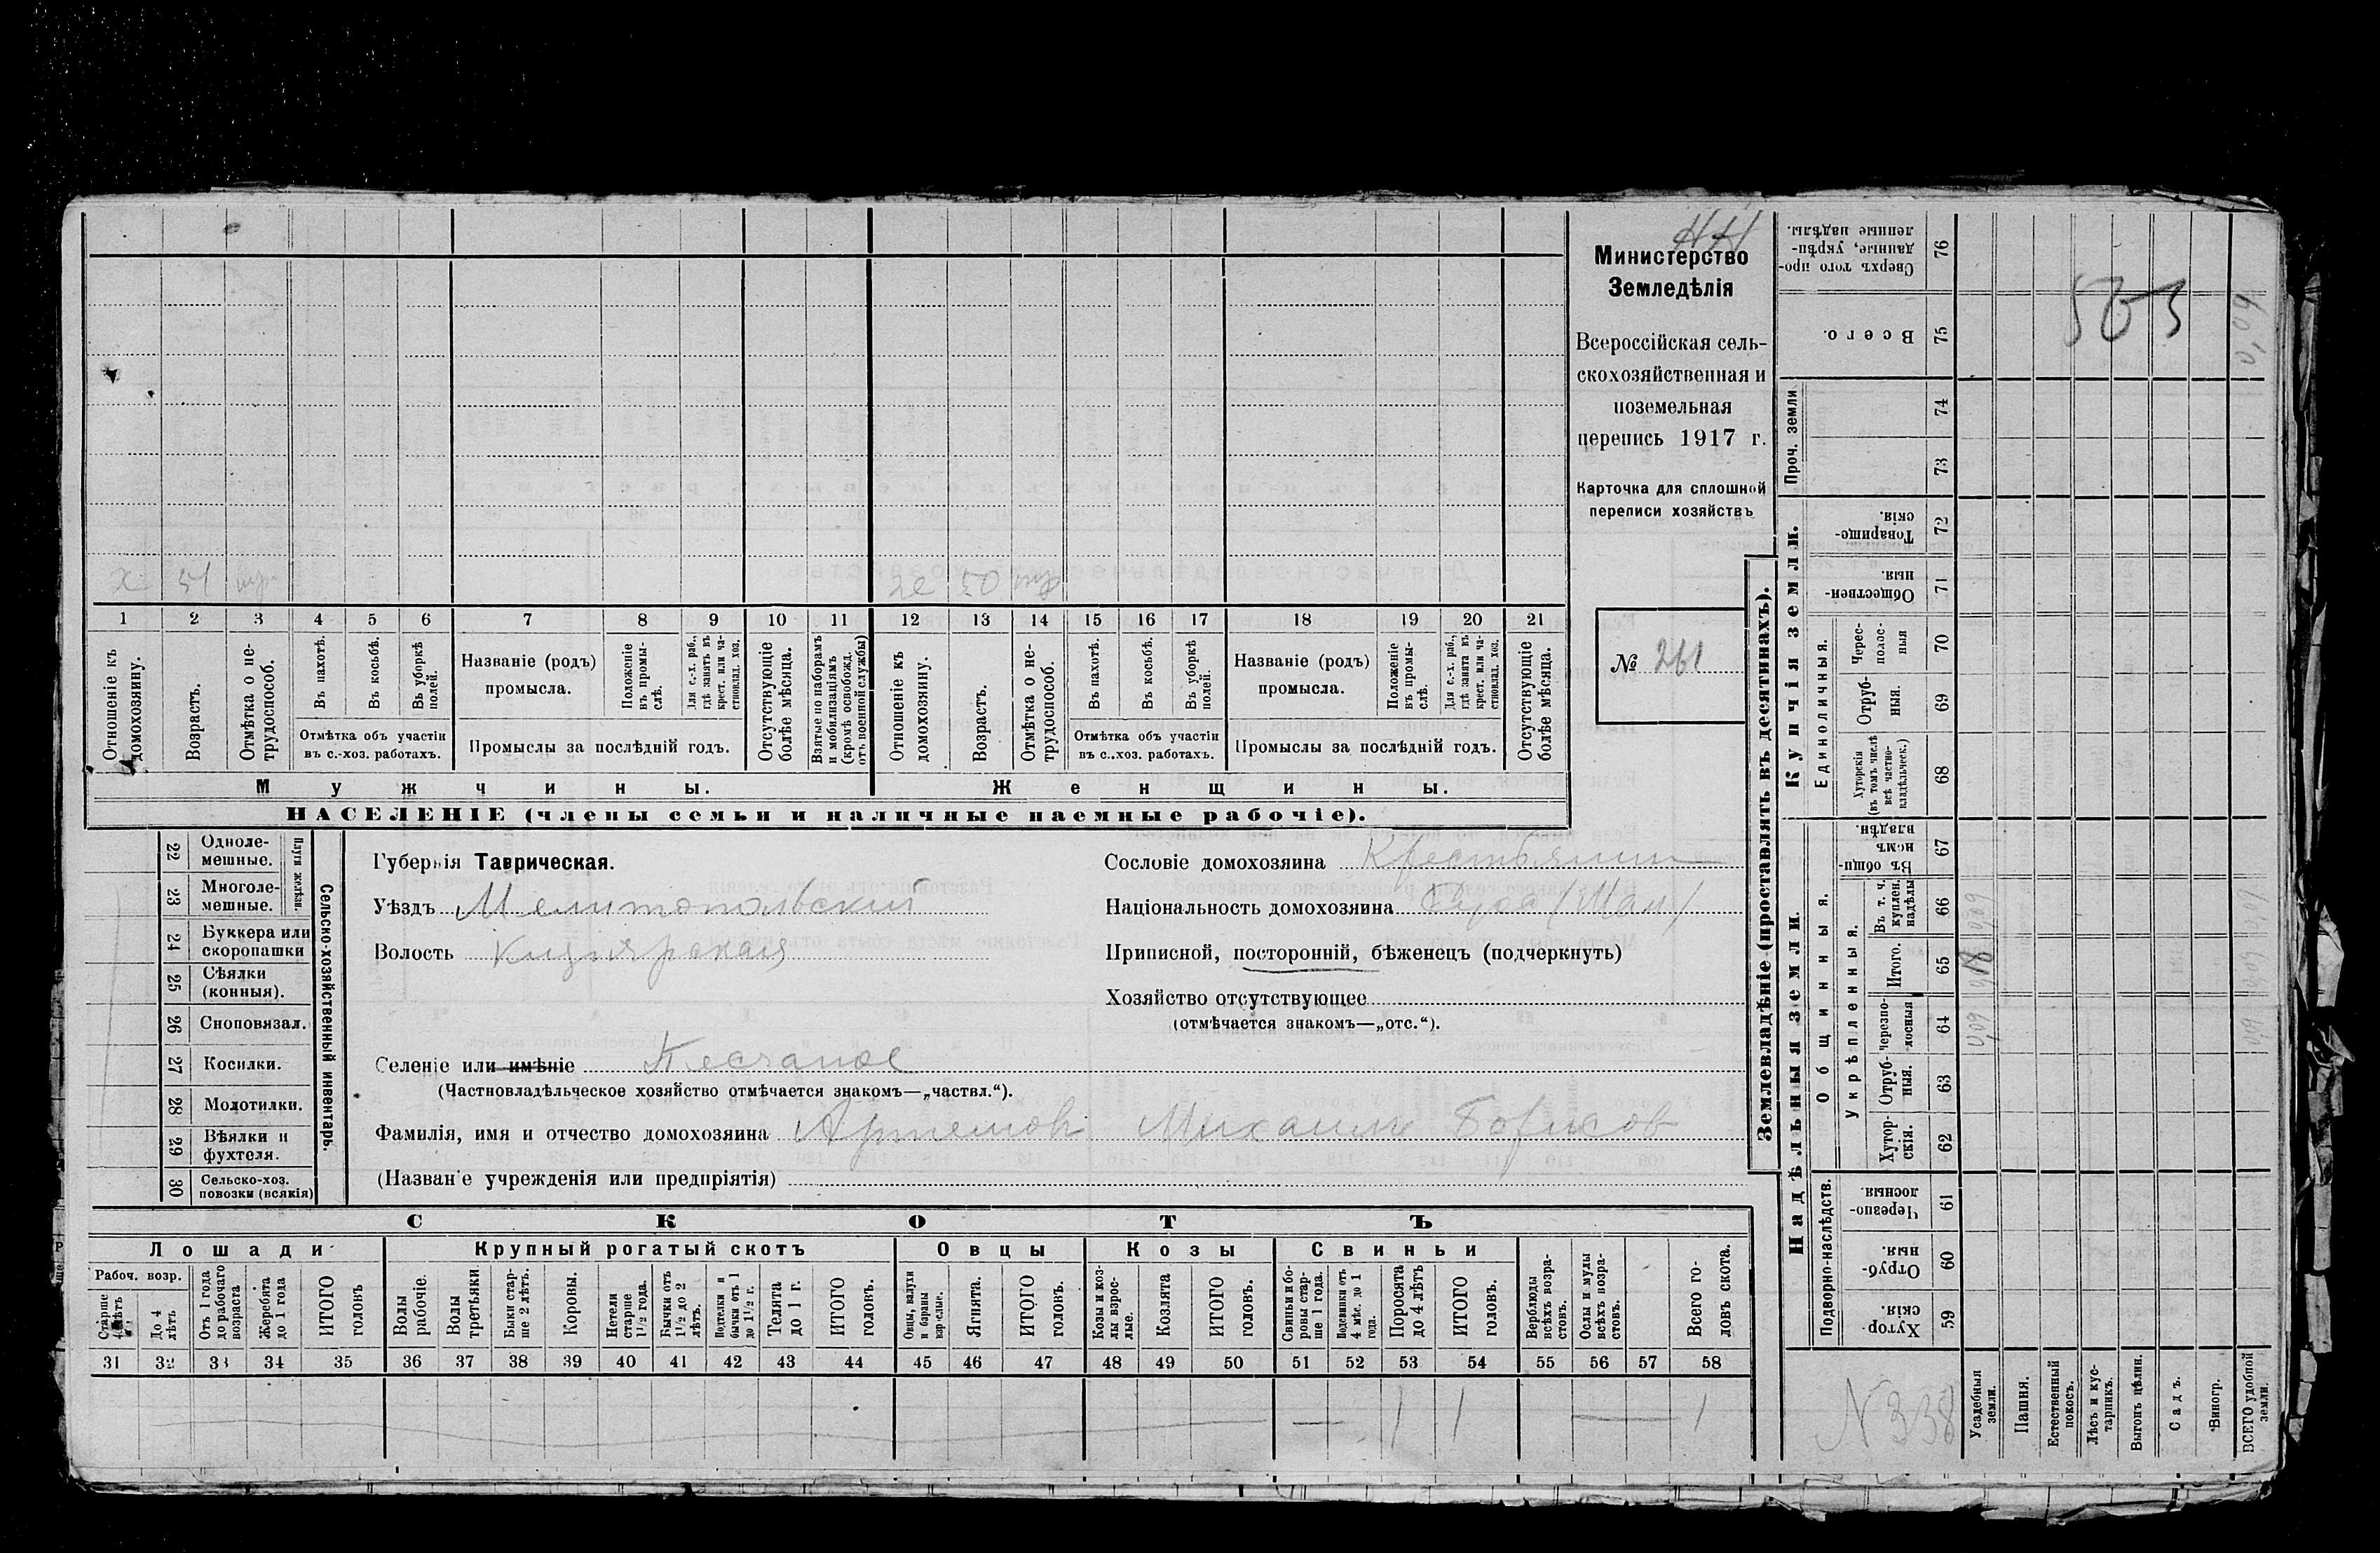 НН
Министерство
Земледѣлія
Всероссійская сель-
скохозяйственная и
поземельная
перепись 1917 г.
Карточка для сплошной
переписи хозяйствъ
№ 261
х 51
50
1 2 3 4 5 6 7 8 9 10 11 12 13 14 15 16 17 18 19 20 21
Отношеніе къ домохозяину.
Возрастъ.
Отмѣтка о не-трудоспособ.
Въ пахотѣ.
Въ косьбѣ.
Въ уборкѣ полей.
Отмѣтка объ участіи
въ с.-хоз. работахъ.
Названіе (родъ)
промысла.
Положеніе въ промы-слѣ.
Для с.-х. раб., гдѣ занятъ въ крест. или ча-стновлад. хоз.
Промыслы за послѣдній годъ.
Отсутствующіе болѣе мѣсяца.
Взятые по наборамъ и мобилизаціямъ (кромѣ освобожд. отъ военной службы)
Отношеніе къ домохозяину.
Возрастъ.
Отмѣтка о не-трудоспособ.
Въ пахотѣ.
Въ косьбѣ.
Въ уборкѣ полей.
Отмѣтка объ участіи
въ с.-хоз. работахъ.
Названіе (родъ)
промысла.
Положеніе въ промы-слѣ.
Для с.-х. раб., гдѣ занята въ крест. или ча-стновлад. хоз.
Промыслы за послѣдній годъ.
Отсутствующіе болѣе мѣсяца.
Мужчины. Женщины.
НАСЕЛЕНІЕ (члены семьи и наличные наемные рабочіе).
Сельско-хозяйственный инвентарь.
Плуги желѣзн.
22 Одноле-мешные.
23 Многоле-мешные.
24 Буккера или скоропашки
25 Сѣялки (конныя).
26 Сноповязал.
27 Косилки.
28 Молотилки.
29 Вѣялки и фухтеля.
30 Сельско-хоз. повозки (всякія)
Губернія Таврическая.
Уѣздъ Мелитопольский
Волость Кизиярская
Селеніе или имѣніе Песчаное
(Частновладѣльческое хозяйство отмѣчается знакомъ—„частвл.“).
Фамилія, имя и отчество домохозяина Артемов Михаил Борисов
(Названіе учрежденія или предпріятія)
Сословіе домохозяина Крестьянин
Національность домохозяина
Приписной, посторонній, бѣженецъ (подчеркнуть)
Хозяйство отсутствующее
(отмѣчается знакомъ—„отс.“).
СКОТЪ
Лошади Крупный рогатый скотъ Овцы Козы Свиньи
Рабоч. возр.
Старше 4 лѣтъ
До 4 лѣтъ
Отъ 1 года до рабочаго возраста
Жеребята до 1 года
ИТОГО головъ
Волы рабочіе.
Волы третьяки
Быки стар-ше 2 лѣтъ.
Коровы.
Нетели старше 1½ года.
Бычки отъ 1½ до 2 лѣтъ.
Подтелки и бычки отъ 1 до 1½ г.
Телята до 1 г.
ИТОГО головъ.
Овцы, валухи и бараны взрослые.
Ягнята.
ИТОГО головъ.
Козы и коз-лы взрос-лые.
Козлята
ИТОГО головъ.
Свиньи и бо-ровы стар-ше 1 года.
Подсвинки отъ 4 мѣс. до 1 года.
Поросята до 4 лѣтъ
ИТОГО головъ.
Верблюды всѣхъ возра-стовъ.
Ослы и мулы всѣхъ возра-стовъ.
Всего го-ловъ скота.
31 32 33 34 35 36 37 38 39 40 41 42 43 44 45 46 47 48 49 50 51 52 53 54 55 56 57 58
1 1 1
Землевладѣніе (проставлять въ десятинахъ).
Купчія земли.
Надѣльныя земли.
Сверхъ того про-данные, укрѣп-ленные надѣлы. 76
Всего. 75
Проч. земли 74 73
Товарище-скія. 72
Обществен-ныя. 71
Единоличныя.
Черес-полос-ныя 70
Отруб-ныя. 69
Хуторскія (въ томъ числѣ всѣ частно-владѣльческ.) 68
Общинныя.
Въ общи-номъ владѣн. 67
Укрѣпленныя.
Въ т. ч. куплен. надѣлы 66
Итого. 65
Черезпо-лосныя 64
Отруб-ныя. 63
Хутор-скія. 62
Подворно-наслѣдств.
Черезпо-лосныя. 61
Отруб-ныя. 60
Хутор-скія. 59
0,09
0,09
N 338
Усадебныя земли.
Пашня.
Естественный покосъ.
Лѣсъ и кус-тарникъ.
Выгонъ цѣлин.
Садъ.
Виногр.
ВСЕГО удобной земли.